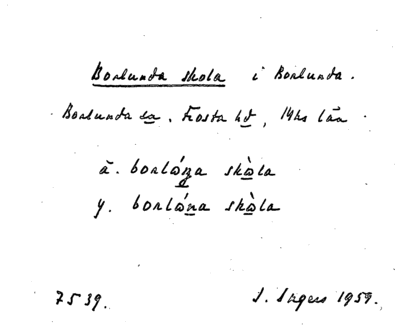 Borlunda skola i Borlunda.
Borlunda sn, Frosta hd, Mhs län
ä. borlo̱ṉa skò̱la
y. borlo̱ṉa skò̱la
7539. S. Ingers 1959.